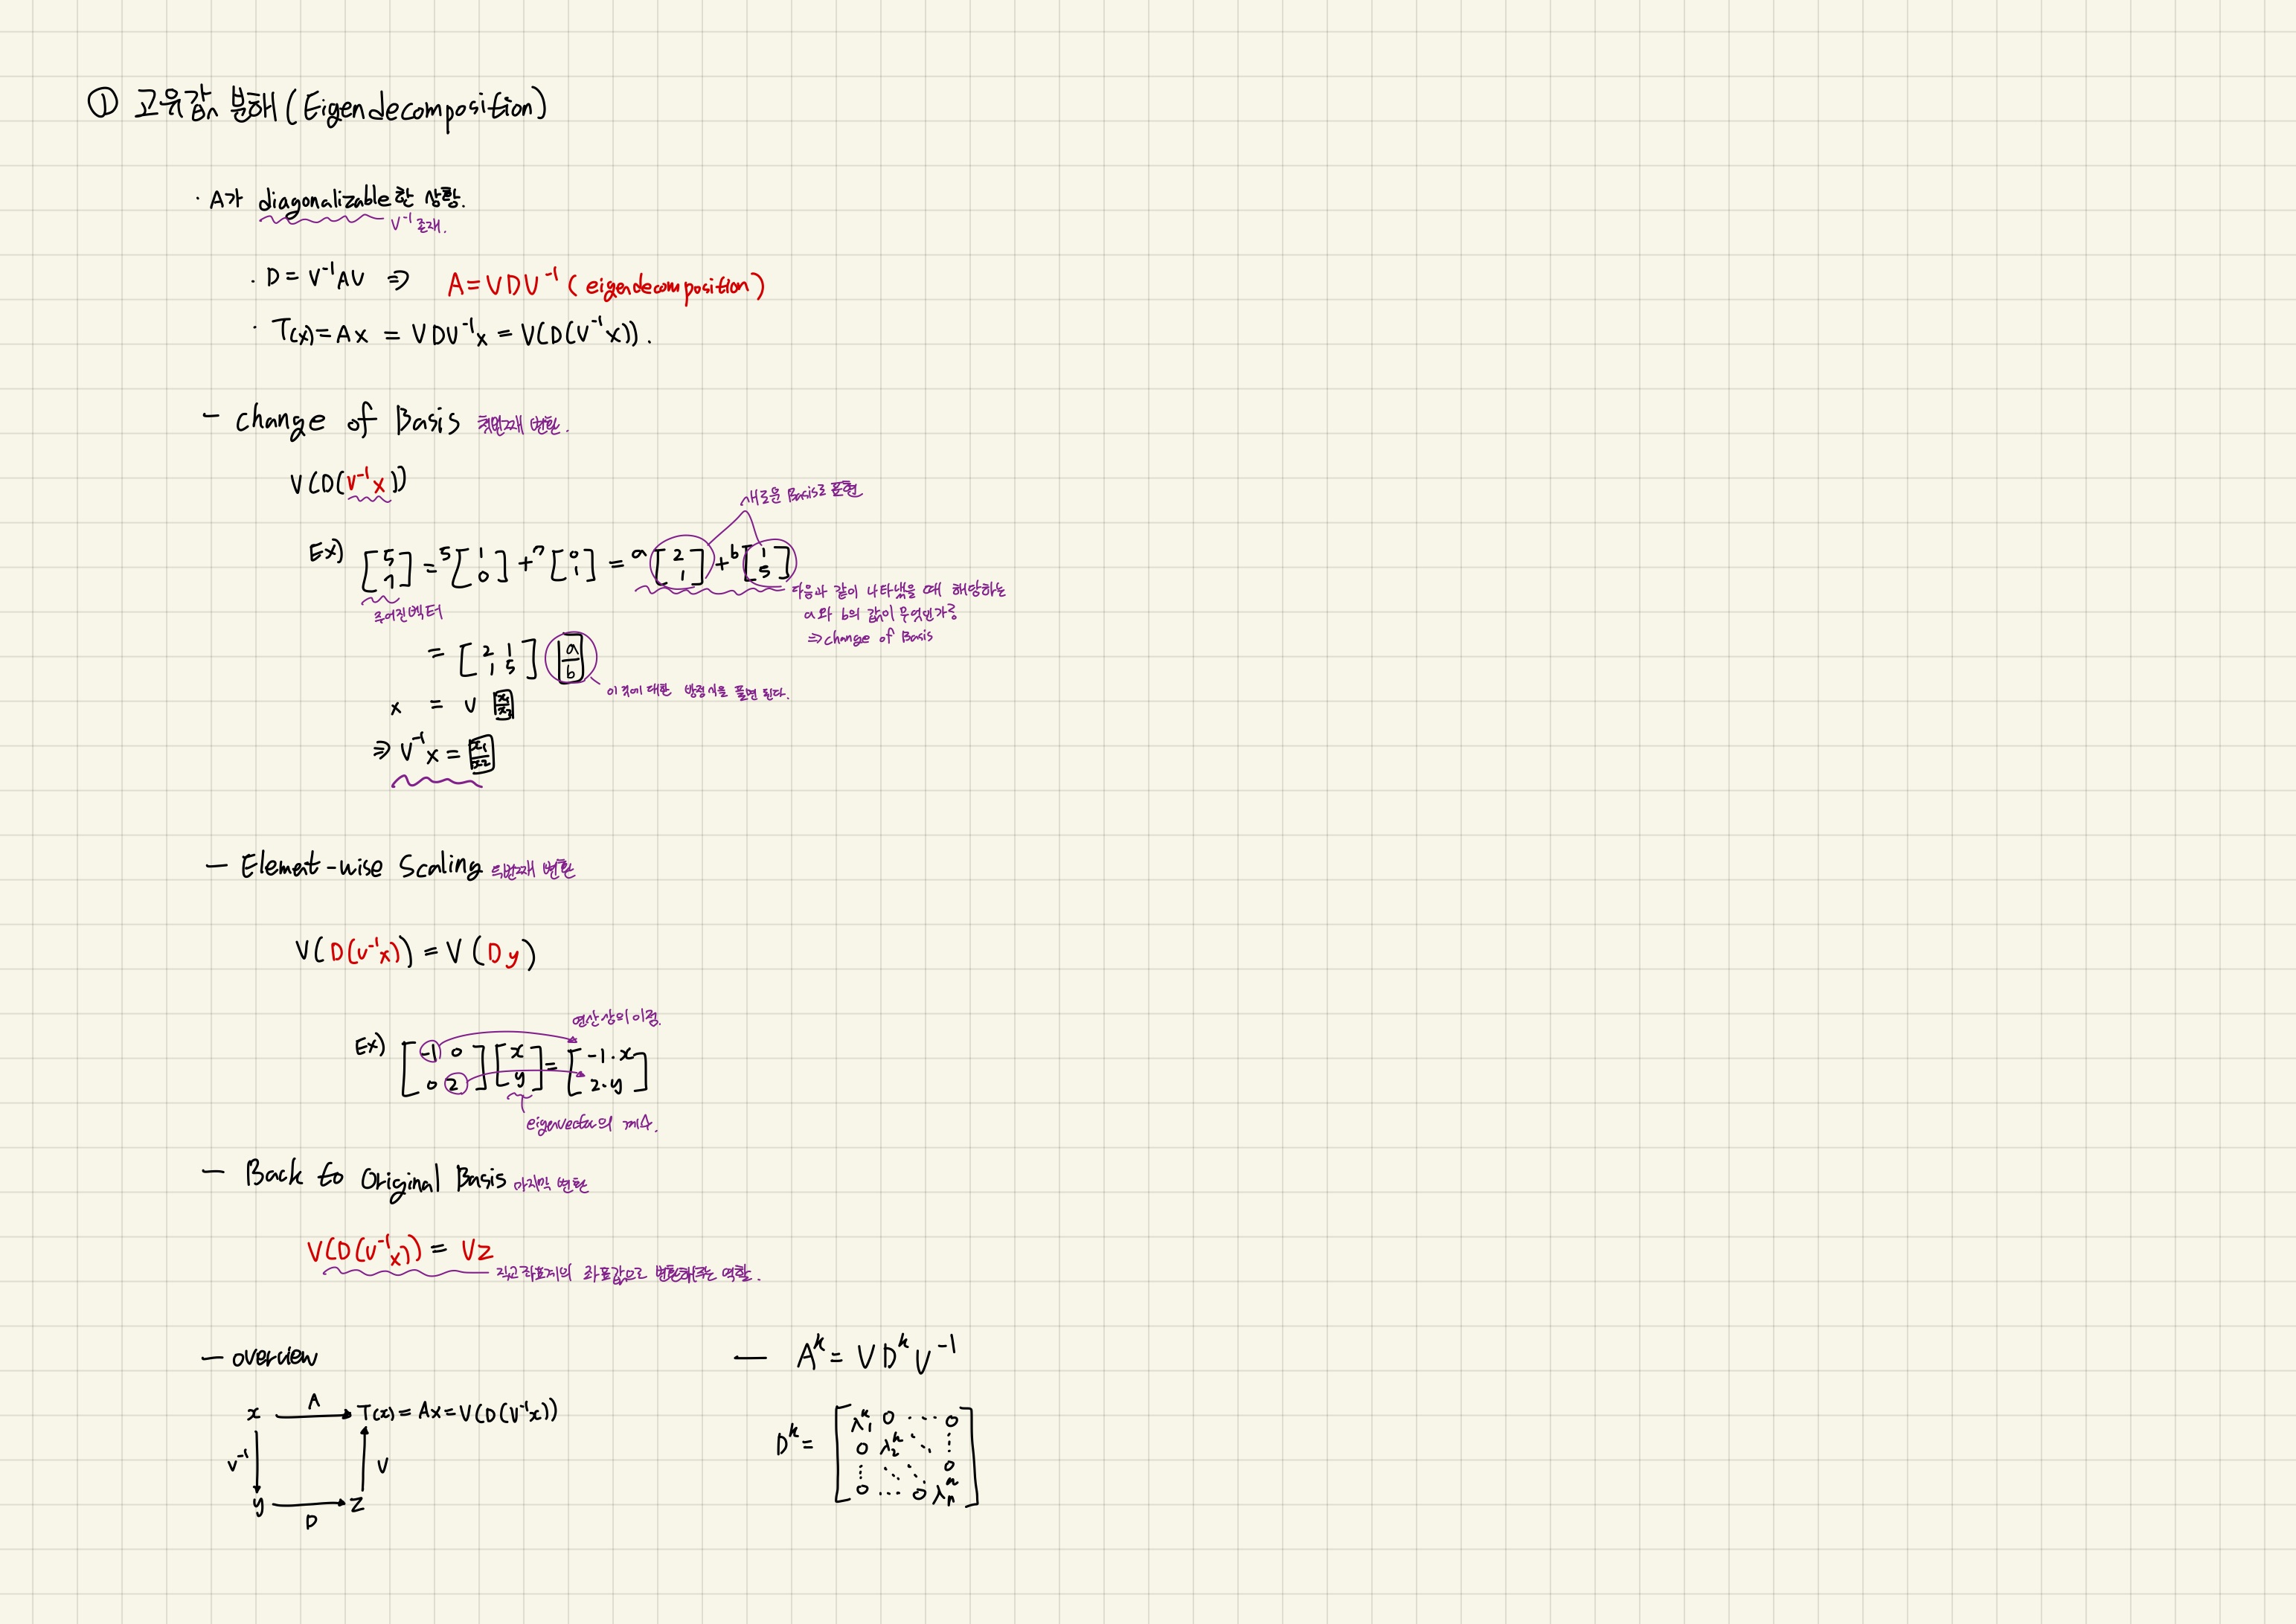 ① 고유값 분해 (Eigendecomposition)
· A가 diagonalizable한 상황.
V⁻¹ 존재.
· D = V⁻¹AV ⇒ A = VDV⁻¹ (eigendecomposition)
· T(x) = Ax = VDV⁻¹x = V(D(V⁻¹x)).
- Change of Basis 첫번째 변환.
V(D(V⁻¹x))
새로운 Basis로 표현
Ex) [5 7] = 5[1 0] + 7[0 1] = a[2 1] + b[1 5]
주어진 벡터
다음과 같이 나타냈을 때 해당하는
a와 b의 값이 무엇인가를
⇒ change of Basis
= [2 1 1 5] [a b]
이것에 대한 방정식을 풀면 된다.
x = V [x₁ x₂]
⇒ V⁻¹x = [x₁ x₂]
- Element-wise Scaling 두번째 변환
V(D(V⁻¹x)) = V(Dy)
연산상의 이점.
Ex) [-1 0 0 2] [x y] = [-1·x 2·y]
eigenvector의 계수.
- Back to Original Basis 마지막 변환
V(D(V⁻¹x)) = Vz
직교좌표계의 좌표값으로 변환해주는 역할.
- overview
x A T(x) = Ax = V(D(V⁻¹x))
V⁻¹ V
y D z
- Aᵏ = VDᵏV⁻¹
Dᵏ = [λ₁ᵏ 0 ··· 0
0 λ₂ᵏ ⋱ ⋮
⋮ ⋱ ⋱ 0
0 ··· 0 λₙᵏ]